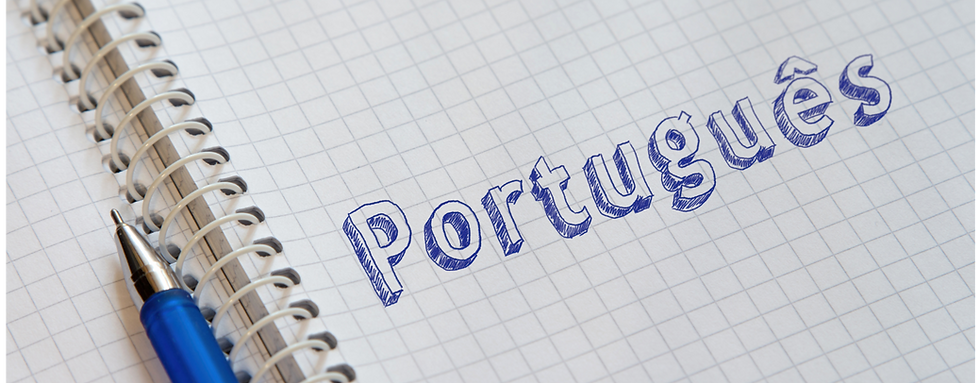 Português